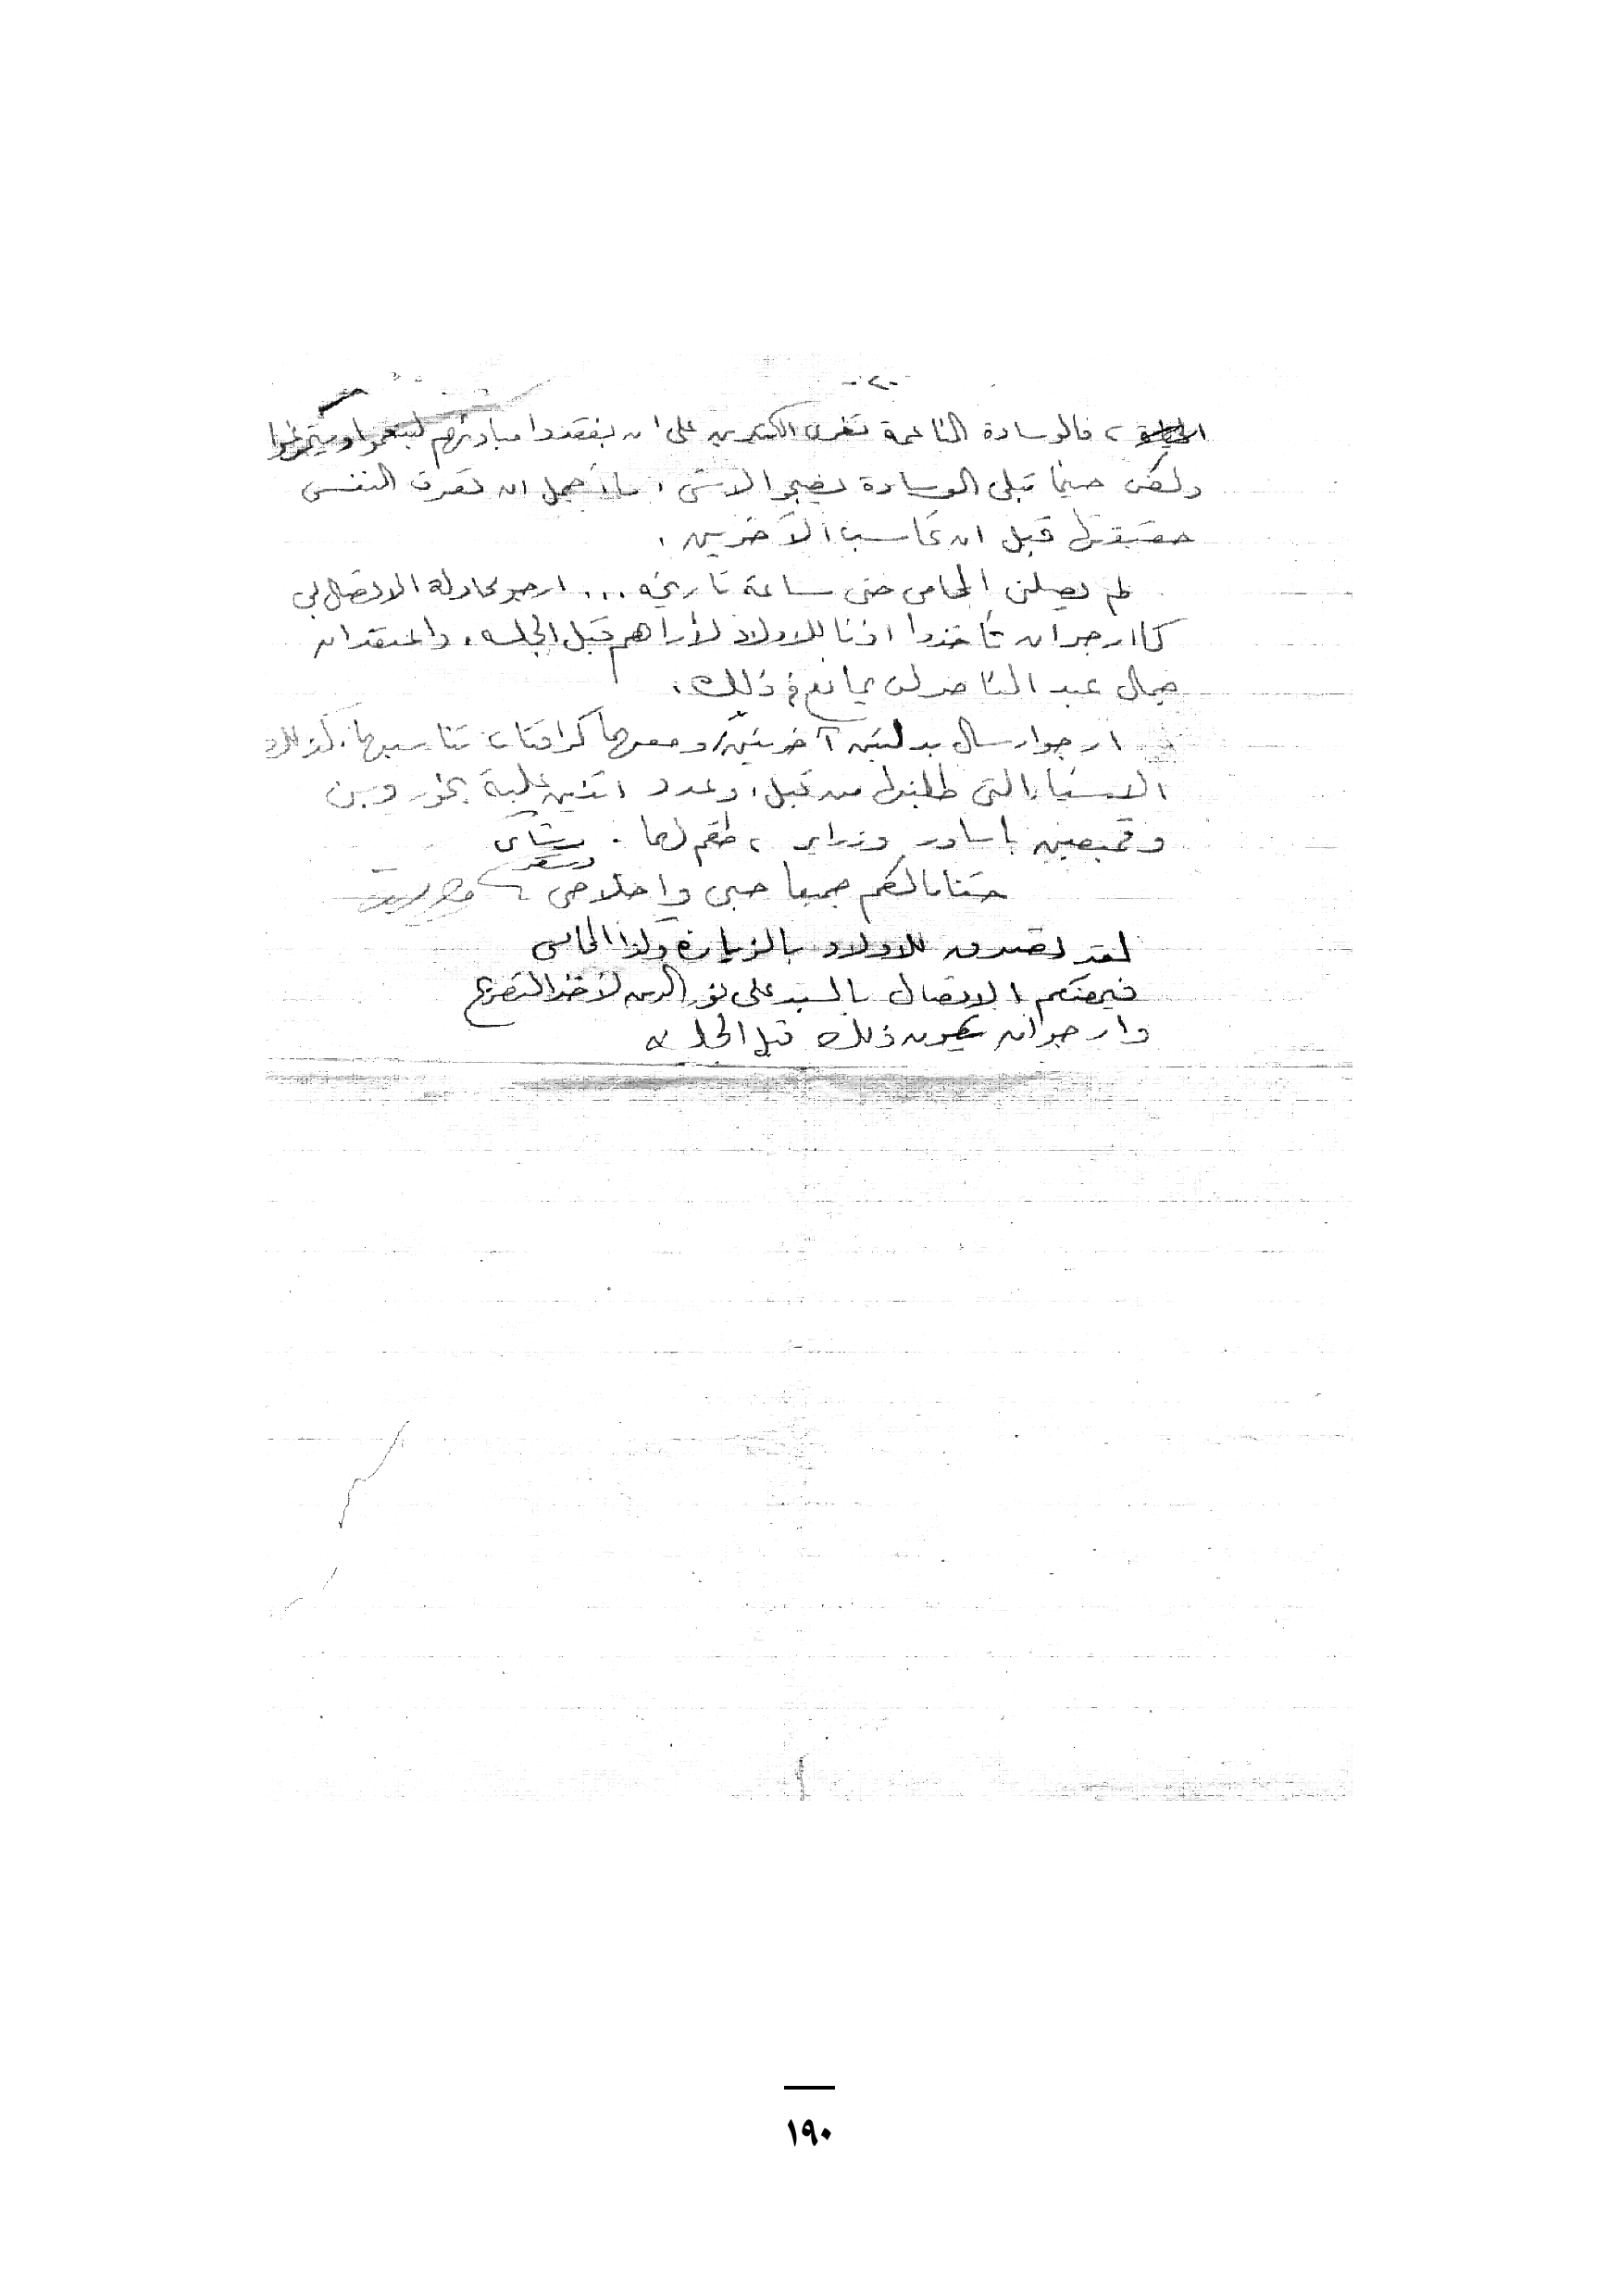 -٢-
فالوسادة الناعمة تغرى الكثيرين على ان يفقدوا مبادئهم لينعموا ويتمرغوا
ولكن حينما تبلى الوسادة يضيع الاثنى، ما أجمل ان تعرف النفس
حقيقتها قبل ان تحاسب الآخرين.
لم يصلنى المحامى حتى ساعة تاريخه ... ارجو محاولة الاتصال بى
كما ارجو ان تأخذوا اذنا للاولاد لأراهم قبل الجلسه. واعتقد ان
جمال عبد الناصر لن يمانع فى ذلك.
ارجو ارسال بدلتين آخريتين ومعهما كرافتات تناسبهما. كذلك
الاشياء التى طلبتها من قبل، وعدد اثنين علبة بخور وبن
وقميصين باساور وزراير، طقم لهما. وشاى
وسكر
ختاما لكم جميعا حبى واخلاصى
لقد تصدق للاولاد بالزيارة وكذا المحامى
فيمكنكم الاتصال بالسيد على نور الدين لأخذ التصريح
وارجو ان يكون ذلك قبل
١٩٠